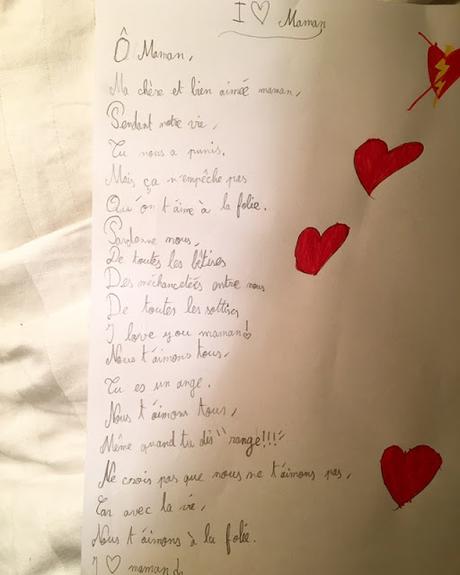 I ♡ Maman
Ô Maman,
Ma chère et bien aimée maman,
Pendant notre vie,
Tu nous a punis.
Mais ça n'empêche pas
Qu'on t'aime à la folie.
Pardonne nous,
De toutes les bêtises
Des méchancetées entre nous
De toutes les sottises
I love you maman!
Nous t'aimons tous,
Tu es un ange.
Nous t'aimons tous,
Même quand tu dis "range!!!"
Ne crois pas que nous ne t'aimons pas,
Car avec la vie,
Nous t'aimons à la folie.
I ♡ maman!